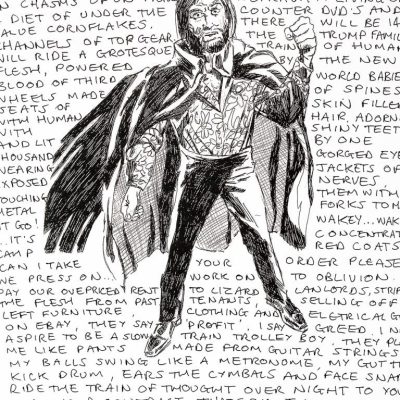 N CHASMS OF
A DIET OF UNDER THE COUNTER DVD'S AND
VALUE CORNFLAKES. THERE WILL BE 14
CHANNELS OF TOP GEAR THE TRUMP FAMIL
WILL RIDE A GROTESQUE TRAIN OF HUMAN
FLESH, POWERED BY THE NEW
BLOOD OF THIRD WORLD BABIE
WHEELS MADE OF SPINES
SEATS OF SKIN FILLED
WITH HUMAN HAIR, ADORN
WITH SHINY TEET
AND LIT BY ONE
THOUSAND GORGED EYE
WEARING JACKETS OF
EXPOSED NERVES,
TOUCHING THEM WITH
METAL FORKS TO M
T GO! WAKEY...WAK
...IT'S CONCENTRAT
CAMP RED COATS
CAN I TAKE YOUR ORDER PLEASE
WE PRESS ON... WORK ON TO OBLIVION.
PAY OUR OVEPRICED RENT TO LIZARD LANLORDS, STRIP
THE FLESH FROM PAST TENANTS, SELLING OFF
LEFT FURNITURE, CLOTHING AND ELETRICAL GO
ON EBAY, THEY SAY 'PROFIT', I SAY GREED IN
ASPIRE TO BE A SLOW TRAIN TROLLEY BOY, THEY PL
ME LIKE PANTS MADE FROM GUITAR STRINGS
MY BALLS SWING LIKE A METRONOME, MY GUT T
KICK DRUM, EARS THE CYMBALS AND FACE SNAR
RIDE THE TRAIN OF THOUGHT OVER NIGHT TO YOU